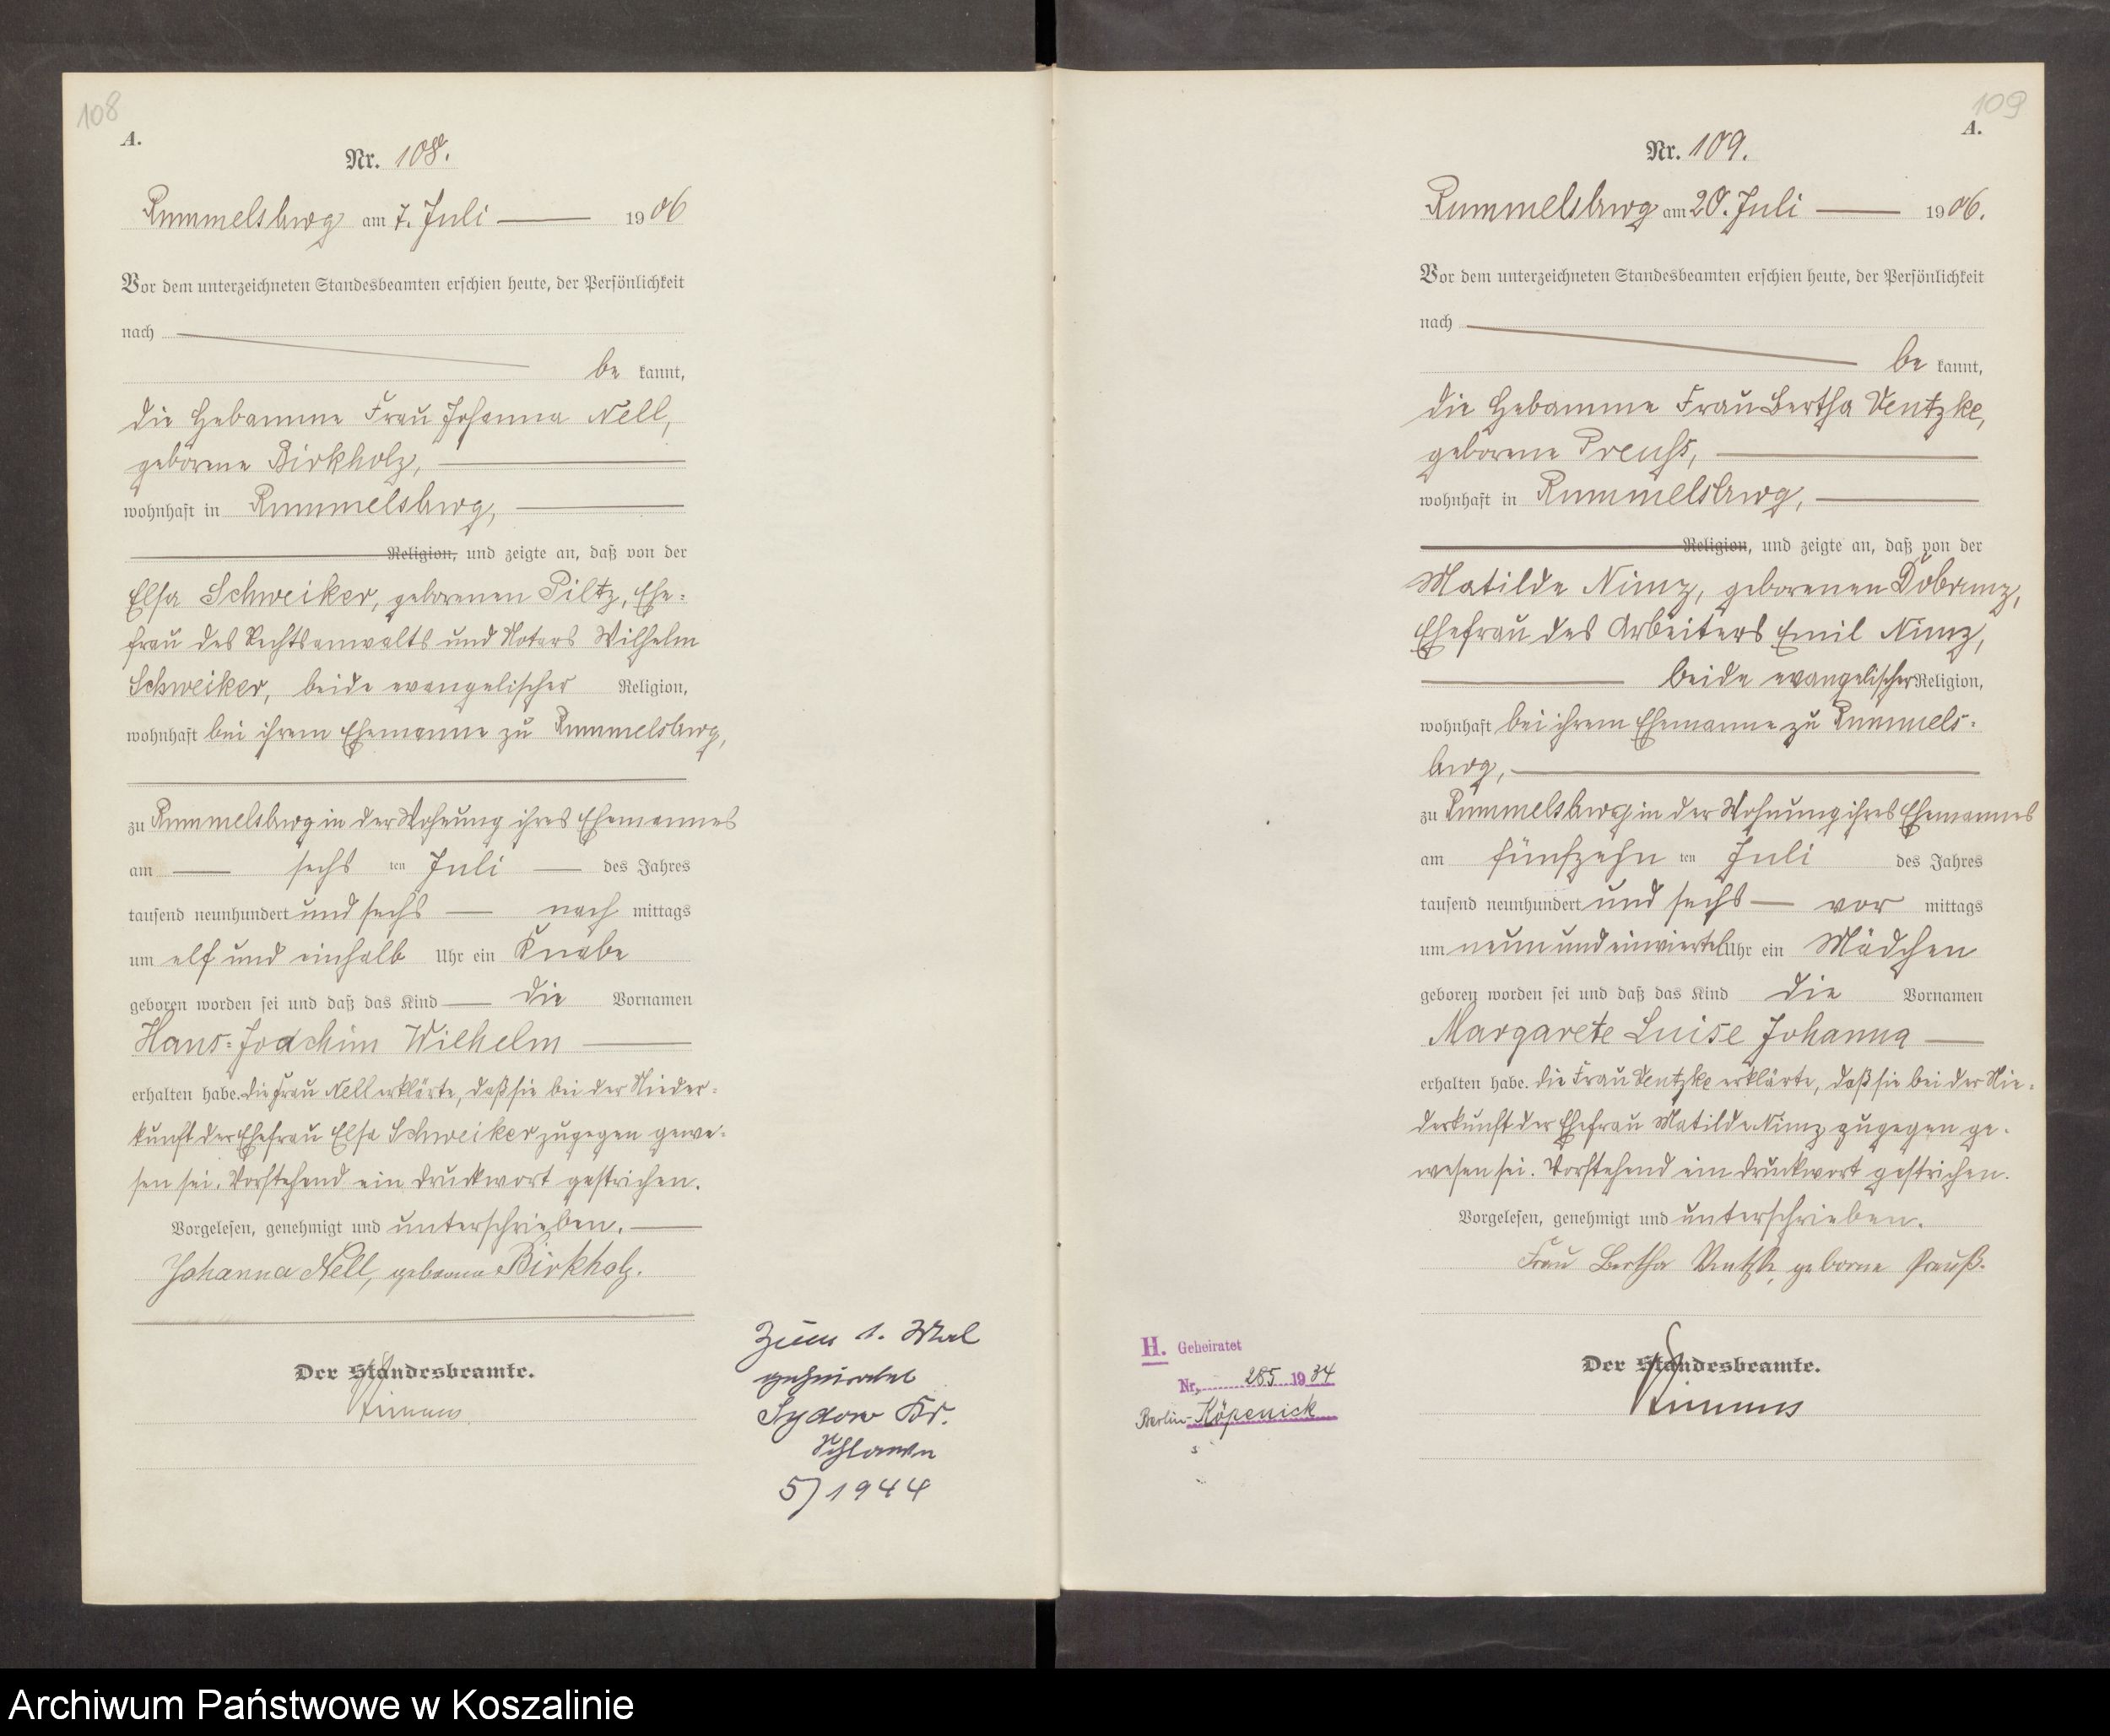 108
A.
Nr. 108.
Rummelsburg am 7. Juli 1906
Vor dem unterzeichneten Standesbeamten erschien heute, der Persönlichkeit
nach
be kannt,
die Hebamme Frau Johanna Nell,
geborene Birkholz,
wohnhaft in Rummelsburg,
Religion, und zeigte an, daß von der
Elsa Schweiker, geborenen Piltz, Ehe=
frau des Rechtsanwalts und Notars Wilhelm
Schweiker, beide evangelischer Religion,
wohnhaft bei ihrem Ehemanne zu Rummelsburg,
zu Rummelsburg in der Wohnung ihres Ehemannes
am sechs ten Juli des Jahres
tausend neunhundert und sechs nach mittags
um elf und einhalb Uhr ein Knabe
geboren worden sei und daß das Kind die Vornamen
Hans=Joachim Wilhelm
erhalten habe. Die Frau Nell erklärte, daß sie bei der Nieder=
kunft der Ehefrau Elsa Schweiker zugegen gewe=
sen sei. Vorstehend ein Druckwort gestrichen.
Vorgelesen, genehmigt und unterschrieben.
Johanna Nell, geborene Birkholz.
Der Standesbeamte.
Zum 1. Mal
geheiratet
Sydow Kr.
Schlawe
5/1944
109
A.
Nr. 109.
Rummelsburg am 20. Juli 1906.
Vor dem unterzeichneten Standesbeamten erschien heute, der Persönlichkeit
nach
be kannt,
die Hebamme Frau Bertha Ventzke,
geborene Preuß,
wohnhaft in Rummelsburg,
Religion, und zeigte an, daß von der
Matilde Nimz, geborenen Dobrunz,
Ehefrau des Arbeiters Emil Nimz,
beide evangelischer Religion,
wohnhaft bei ihrem Ehemanne zu Rummels=
burg,
zu Rummelsburg in der Wohnung ihres Ehemannes
am fünfzehn ten Juli des Jahres
tausend neunhundert und sechs vor mittags
um neun und einviertel Uhr ein Mädchen
geboren worden sei und daß das Kind die Vornamen
Margarete Luise Johanna
erhalten habe. Die Frau Ventzke erklärte, daß sie bei der Nie=
derkunft der Ehefrau Matilde Nimz zugegen ge=
wesen sei. Vorstehend ein Druckwort gestrichen.
Vorgelesen, genehmigt und unterschrieben.
Frau Bertha Ventzke, geborne Preuß.
Der Standesbeamte.
H. Geheiratet
Nr. 285 1934
Berlin-Köpenick
Archiwum Państwowe w Koszalinie